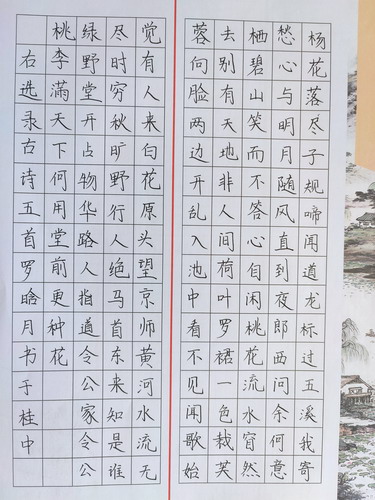 杨花落尽子规啼闻道龙标过五溪我寄
愁心与明月随风直到夜郎西问余何意
栖碧山笑而不答心自闲桃花流水窅然
去别有天地非人间荷叶罗裙一色裁芙
蓉向脸两边开乱入池中看不见闻歌始
觉有人来白花原头望京师黄河水流无
尽时穷秋旷野行人绝马首东来知是谁
绿野堂开占物华路人指道令公家令公
桃李满天下何用堂前更种花
右选录古诗五首罗晗月书于桂中